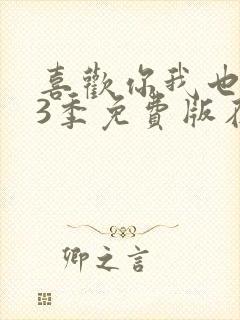 喜歡你我也
3季免費版在
卿之言